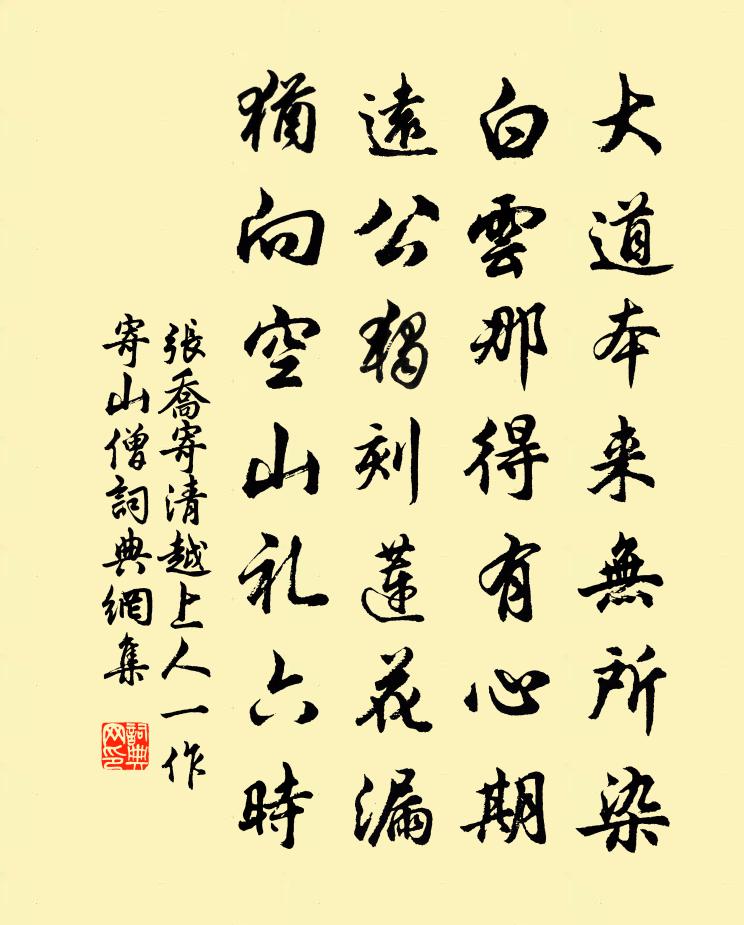 大道本来無所染
白雲那得有心期
遠公獨刻蓮花漏
猶向空山礼六時
張喬寄清越上人一作
寄山僧詞典網集
詞典
网印